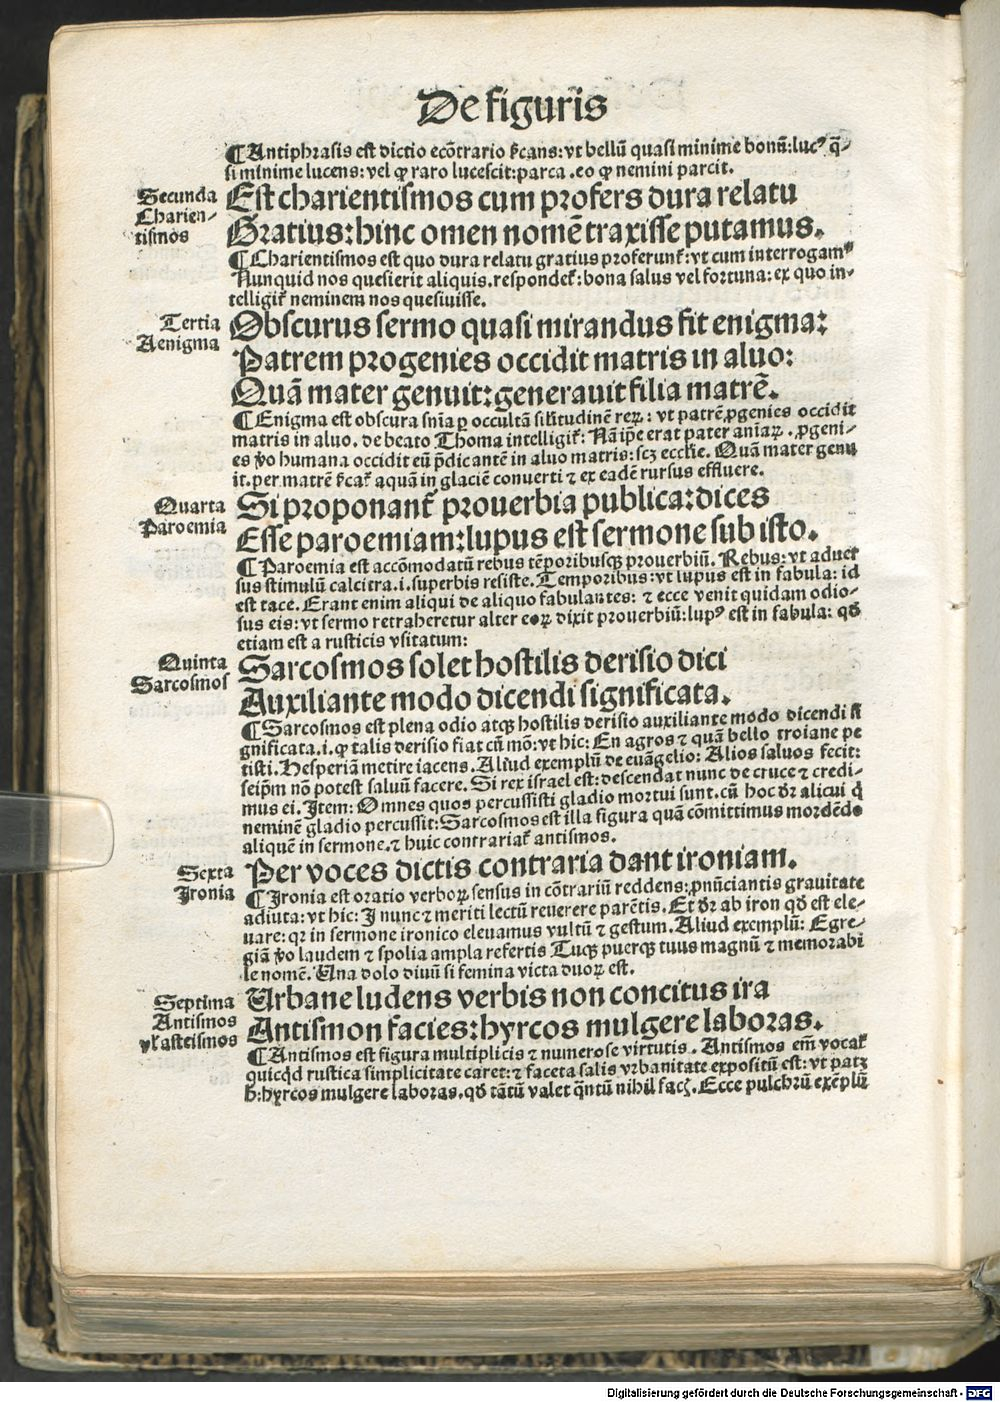 De figuris
¶Antiphrasis est dictio ecõtrario ſ̃cans: vt bellũ quasi minime bonũ: lucꝰ q̃-
si minime lucens: vel ꝙ raro lucescit: parca. eo ꝙ nemini parcit.
Secunda
Charien-
tismos
Est charientismos cum profers dura relatu
Gratius: hinc omen nomẽ traxisse putamus.
¶Charientismos est quo dura relatu gratius proferunt᷑: vt cum interrogamꝰ
Nunquid nos quesierit aliquis. respondet᷑: bona salus vel fortuna: ex quo in-
telligit᷑ neminem nos quesiuisse.
Tertia
Aenigma
Obscurus sermo quasi mirandus fit enigma:
Patrem progenies occidit matris in aluo:
Quã mater genuit: generauit filia matrẽ.
¶Enigma est obscura sñia ꝑ occultã silitudinẽ reꝝ: vt patrẽ ꝓgenies occidit
matris in aluo. de beato Thoma intelligit᷑: Nã ip̃e erat pater aniaꝝ. ꝓgeni-
es ꝟo humana occidit eũ p̃dicantẽ in aluo matris: scꝫ ecclie. Quã mater genu
it. per matrẽ ſ̃cat᷑ aquã in glaciẽ conuerti ⁊ ex eadẽ rursus effluere.
Quarta
Paroemia
Si proponant᷑ prouerbia publica: dices
Esse paroemiam: lupus est sermone sub isto.
¶Paroemia est accõmodatũ rebus tẽporibusqꝫ prouerbiũ. Rebus: vt aduer
sus stimulũ calcitra. i. superbis resiste. Temporibus: vt lupus est in fabula: id
est tace. Erant enim aliqui de aliquo fabulantes: ⁊ ecce venit quidam odio-
sus eis: vt sermo retraheretur alter eoꝝ dixit prouerbiũ: lupꝰ est in fabula: qđ
etiam est a rusticis vsitatum:
Quinta
Sarcosmos
Sarcosmos solet hostilis derisio dici
Auxiliante modo dicendi significata.
¶Sarcosmos est plena odio atqꝫ hostilis derisio auxiliante modo dicendi si
gnificata. i. ꝙ talis derisio fiat cũ mõ: vt hic: En agros ⁊ quã bello troiane pe
tisti. Hesperiã metire iacens. Aliud exemplũ de euãgelio: Alios saluos fecit:
seip̃m nõ potest saluũ facere. Si rex israel est: descendat nunc de cruce ⁊ credi-
mus ei. Item: Omnes quos percussisti gladio mortui sunt. cũ hoc dr̃ alicui q̇
neminẽ gladio percussit: Sarcosmos est illa figura quã cõmittimus mordẽdo
aliquẽ in sermone. ⁊ huic contrariat᷑ antismos.
Sexta
Ironia
Per voces dictis contraria dant ironiam.
¶Ironia est oratio verboꝝ sensus in cõtrariũ reddens: ꝓnũciantis grauitate
adiuta: vt hic: I nunc ⁊ meriti lectũ reuerere parẽtis. Et dr̃ ab iron qđ est ele-
uare: qꝛ in sermone ironico eleuamus vultũ ⁊ gestum. Aliud exemplũ: Egre-
giã ꝟo laudem ⁊ spolia ampla refertis Tuqꝫ puerqꝫ tuus magnũ ⁊ memorabi
le nomẽ. Una dolo diuũ si femina victa duoꝝ est.
Septima
Antismos
vl̓ asteismos
Urbane ludens verbis non concitus ira
Antismon facies: hyrcos mulgere laboras.
¶Antismos est figura multiplicis ⁊ numerose virtutis. Antismos em̃ vocat᷑
quicqđ rustica simplicitate caret: ⁊ faceta salis vrbanitate expositũ est: vt patꝫ
h̓: hyrcos mulgere laboras. qđ tãtũ valet q̃ntũ nihil facꝫ. Ecce pulchrũ exẽplũ
Digitalisierung gefördert durch die Deutsche Forschungsgemeinschaft - DFG